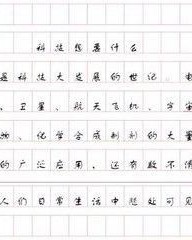 科技想要什么
是科技大发展的世记。电
、卫星、航天飞机、宇宙
物、化学合成制剂的大量
的广泛应用，还有数不清
人们日常生活中随处可见